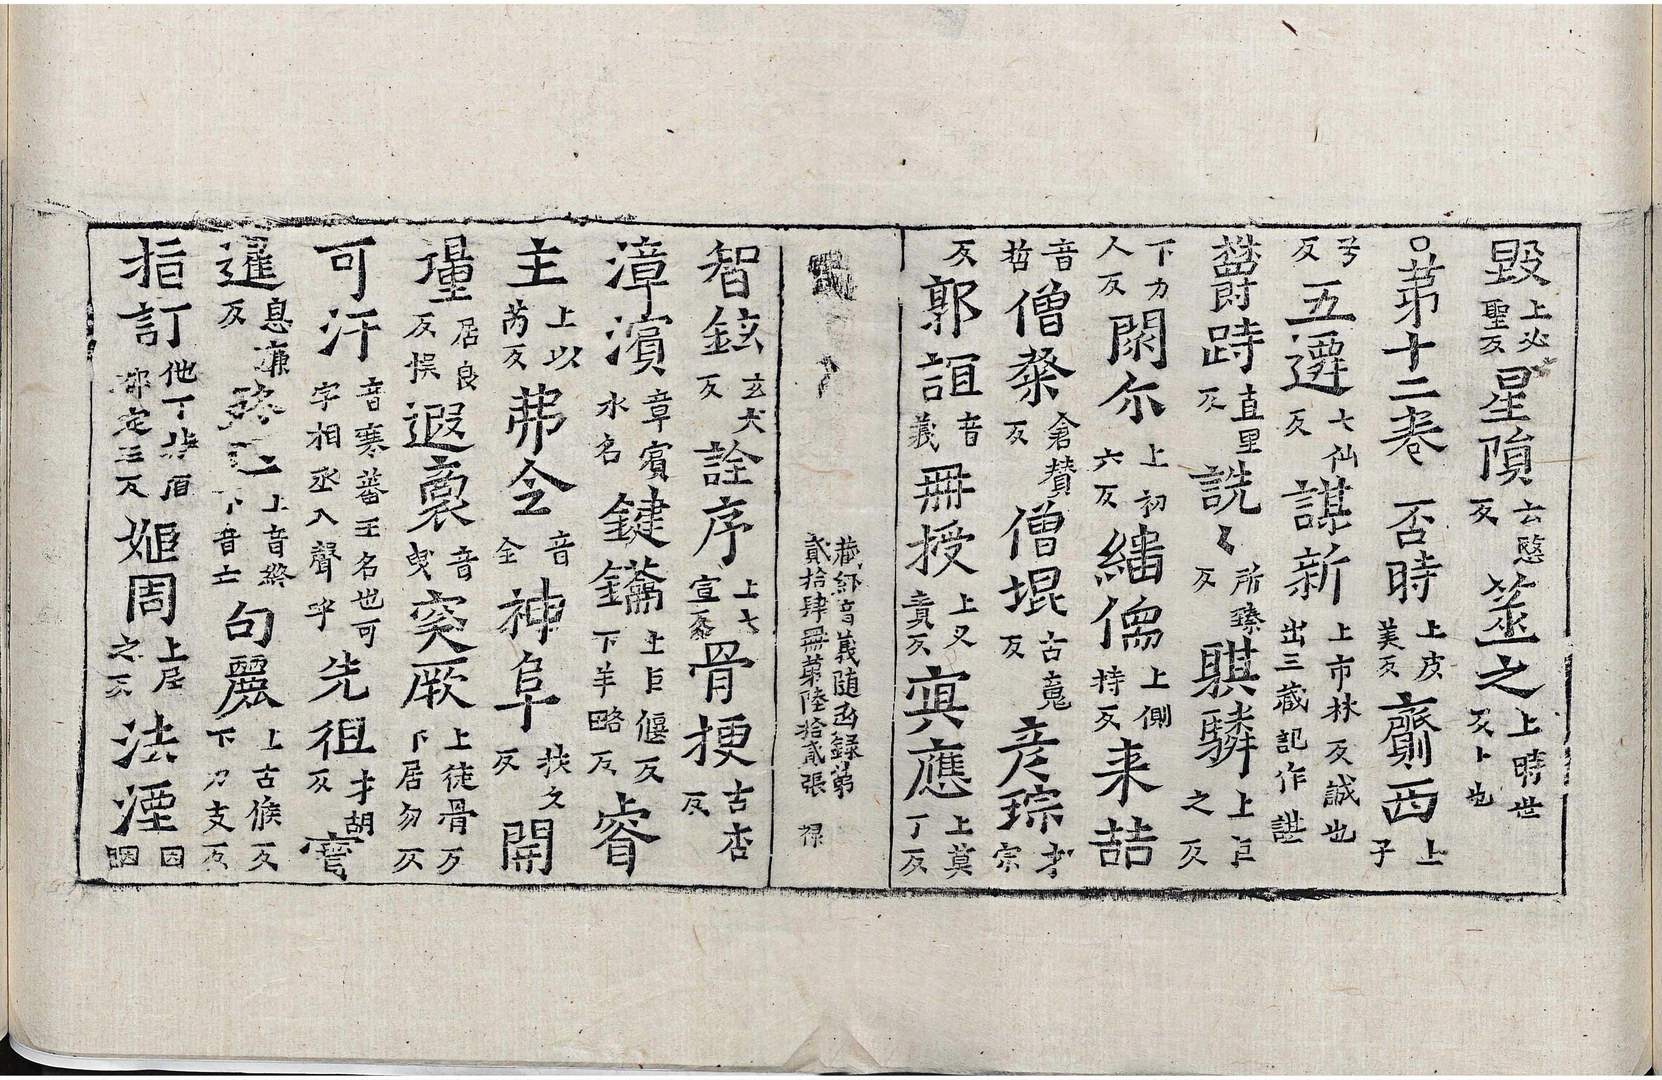 毀上必聖反星隕云愍反筮之上時世反卜也
○苐十二卷 否時上皮美反齎西上子
兮反五遷七仙反諶新上市林反誠也出三藏記作諶
躊跱直里反詵〻所臻反騏驎上巨之反
下力人反閦尒上初六反繙儒上側持反耒喆
音哲僧粲倉贊反僧琨古䰟反彦琮才宗
反郭誼音義冊授上叉責反㝠應上莫丁反
藏經音義随函録第貳拾肆冊第陸拾貳張 禄
智鉉玄犬反詮序上七宣反骨梗古杏反
漳濱章賓水名鍵鑰上巨偃反下羊略反睿
主上以芮反弗仝音全神阜扶久反開
壃居良反悮遐裔音曳突厥上徒骨反下居勿反
可汗音寒蕃王名也可字相丞入聲乎先徂才胡反寳
暹息廉反 上音終下音士句麗上古侯反下力支反
指訂他丁都定二反姬周上居之反法湮因咽